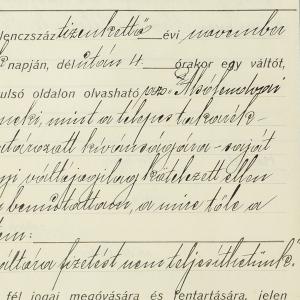 lenczszáz tizenkettő évi november
napján, délután 4 órakor egy váltót,
tulsó oldalon olvasható przo. Alsólendvai
neki, mint a telepes takarék-
határozott kívánságára - saját
gyi váltójogilag kötelezett ellen
bemutattam, a mire tőle a
tem:
váltóra fizetést nem teljesíthetünk."
fél jogai megóvására és fentartására, jelen